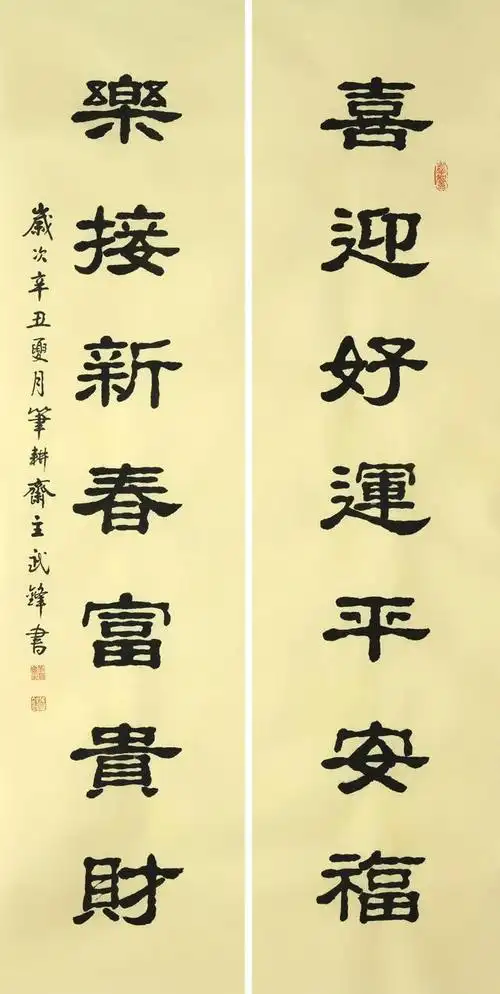 喜迎好運平安福
樂接新春富貴財
歲次辛丑夏月筆耕齋主武鋒書